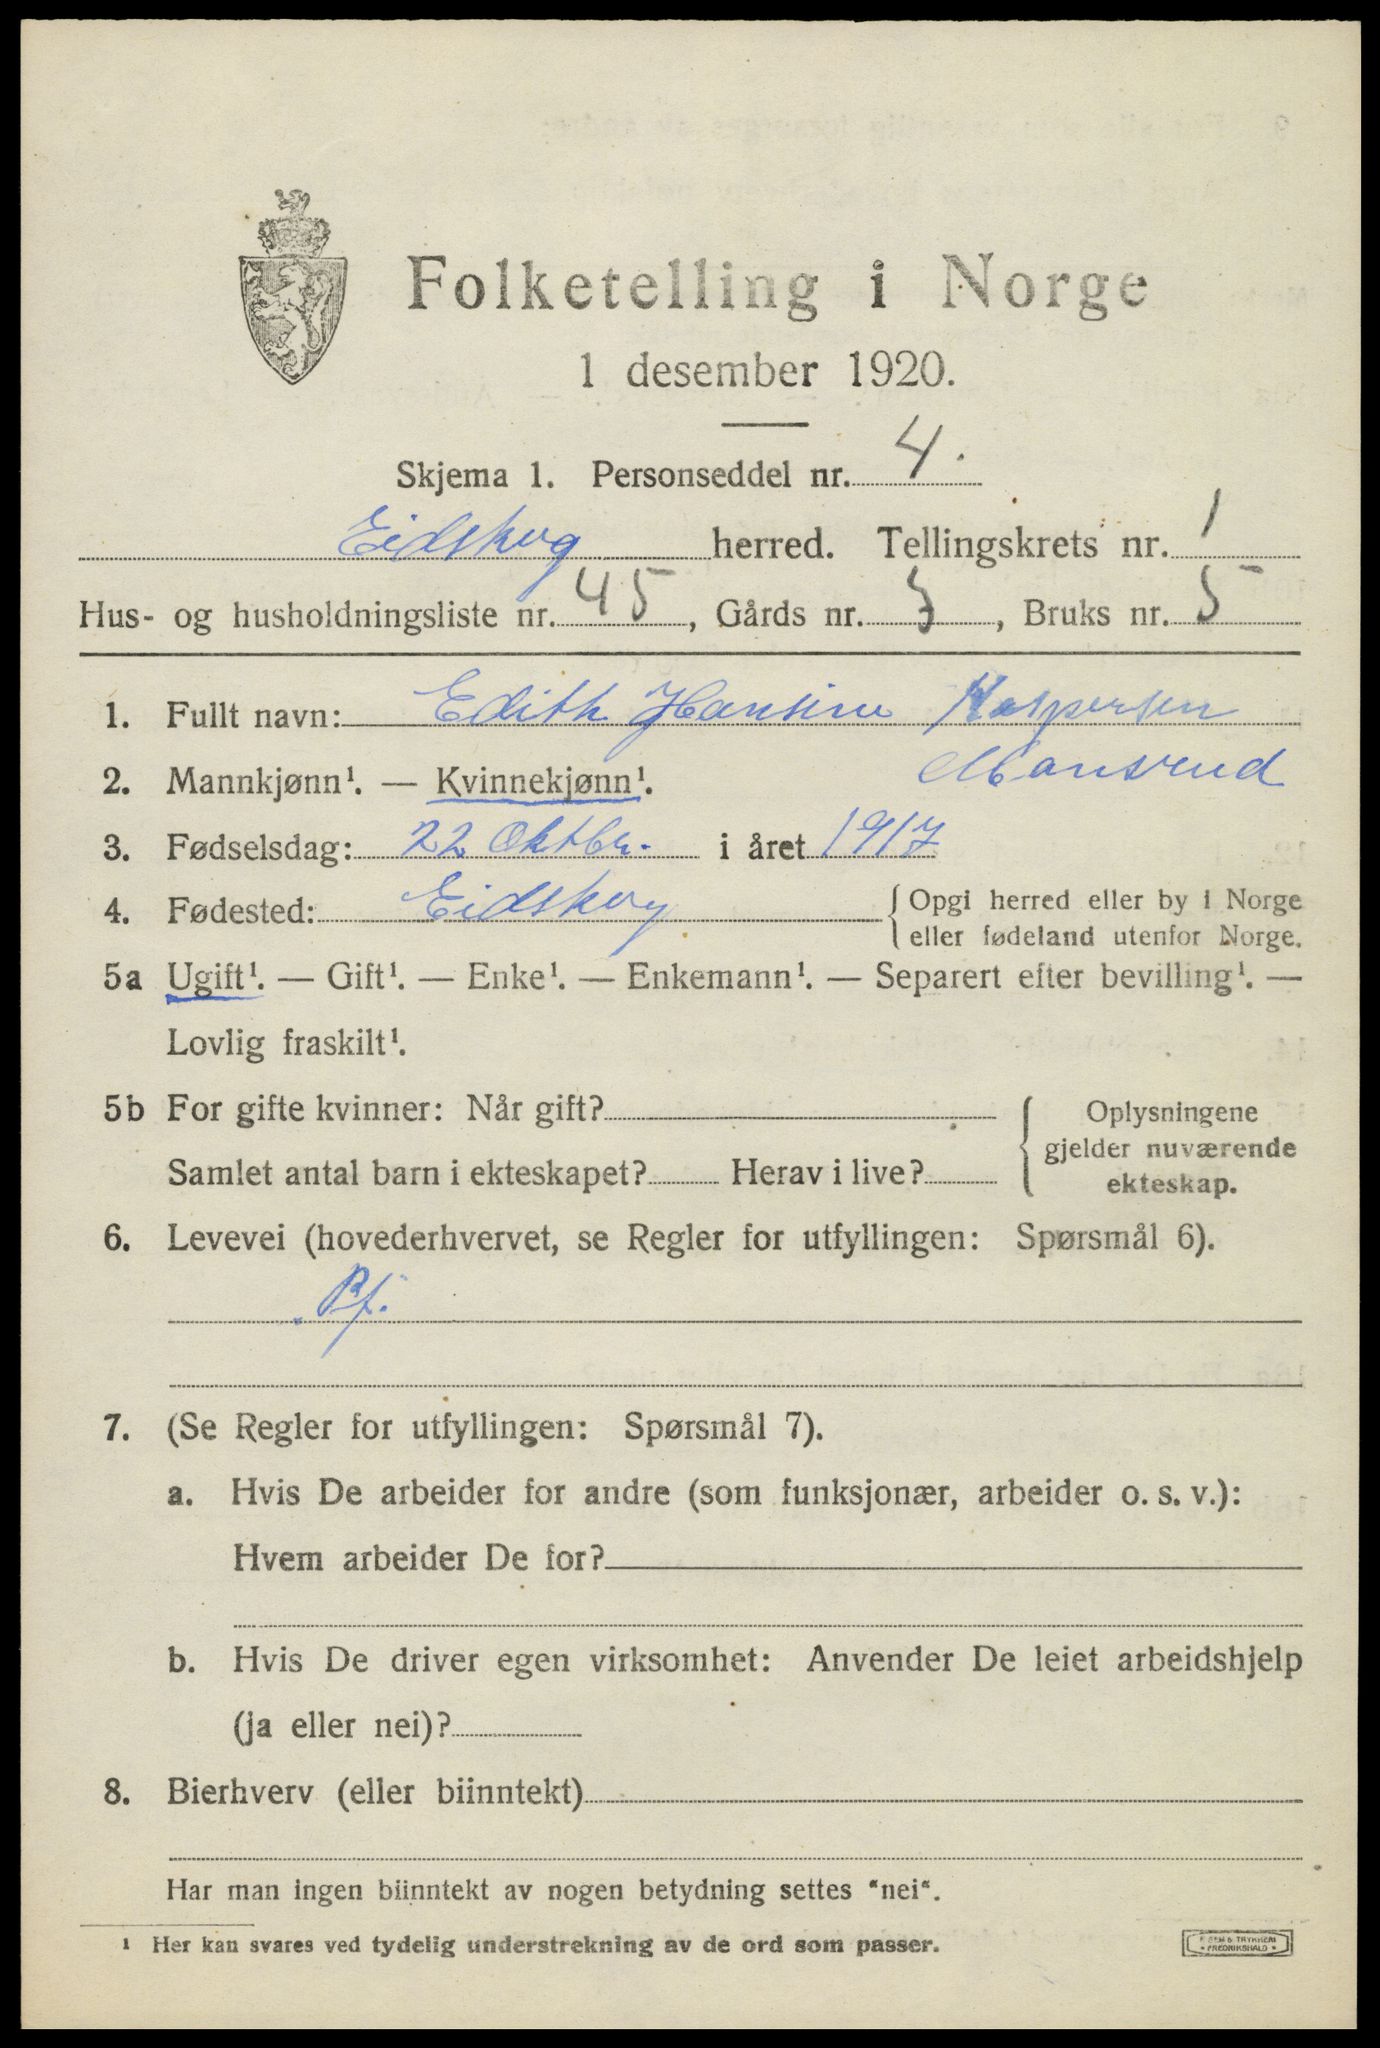 Folketelling i Norge
1 desember 1920.
Skjema 1. Personseddel nr. 4.
Eidskog herred. Tellingskrets nr. 1
Hus- og husholdningsliste nr. 45, Gårds nr. 3, Bruks nr. 5
1. Fullt navn: Edith Hansine Kaspersen
Mansrud
2. Mannkjønn¹. — Kvinnekjønn¹.
3. Fødselsdag: 22 Oktbr. i året 1917
4. Fødested: Eidskog { Opgi herred eller by i Norge
eller fødeland utenfor Norge.
5a Ugift¹. — Gift¹. — Enke¹. — Enkemann¹. — Separert efter bevilling¹. —
Lovlig fraskilt¹.
5b For gifte kvinner: Når gift?
Samlet antal barn i ekteskapet? Herav i live?
{ Oplysningene
gjelder nuværende
ekteskap.
6. Levevei (hovederhvervet, se Regler for utfyllingen: Spørsmål 6).
Bf.
7. (Se Regler for utfyllingen: Spørsmål 7).
a. Hvis De arbeider for andre (som funksjonær, arbeider o. s. v.):
Hvem arbeider De for?
b. Hvis De driver egen virksomhet: Anvender De leiet arbeidshjelp
(ja eller nei)?
8. Bierhverv (eller biinntekt)
Har man ingen biinntekt av nogen betydning settes "nei".
¹ Her kan svares ved tydelig understrekning av de ord som passer.
TRYKKERI
FREDRIKSHALD